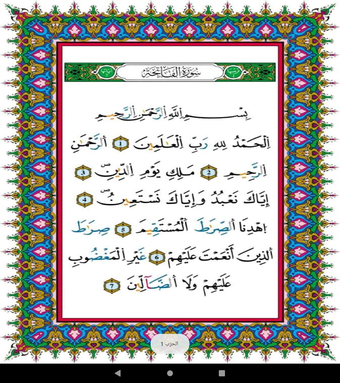 سُورَةُ الفَاتِحَةِ
بِسْمِ اللَّهِ الرَّحْمَٰنِ الرَّحِيمِ
اِ۬لْحَمْدُ لِلهِ رَبِّ اِ۬لْعَٰلَمِينَ 1 اَ۬لرَّحْمَٰنِ
اِ۬لرَّحِيمِ 2 مَلِكِ يَوْمِ اِ۬لدِّينِ 3
إِيَّاكَ نَعْبُدُ وَإِيَّاكَ نَسْتَعِينُ 4
اُ۪هْدِنَا اَ۬لصِّرَٰطَ اَ۬لْمُسْتَقِيمَ 5 صِرَٰطَ
اَ۬لذِينَ أَنْعَمْتَ عَلَيْهِمْ 6 غَيْرِ اِ۬لْمَغْضُوبِ
عَلَيْهِمْ وَلَا اَ۬لضَّآلِّينَ 7
الحزب 1